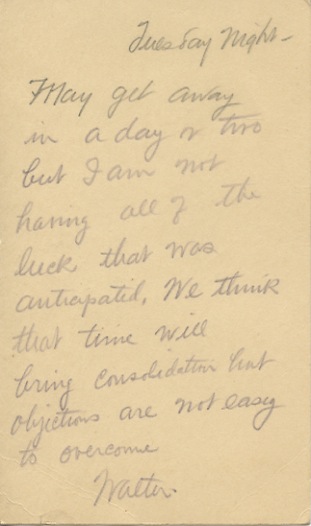 Tuesday Night-
May get away
in a day or two
but I am not
having all of the
luck that was
antcapated. We think
that time will
bring consolidation but
objections are not easy
to overcome
Walter.